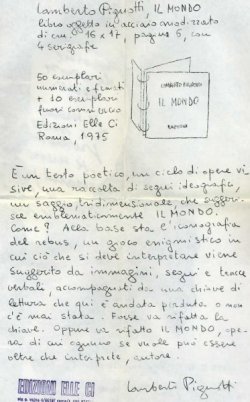 Lamberto Pignotti, IL MONDO
libro oggetto in acciaio anodizzato
di cm. 16 x 17, pagine 6, con
4 serigrafie
50 esemplari
numerati e firmati
+ 10 esemplari
fuori commercio
Edizioni Elle Ci
Roma, 1975
LAMBERTO PIGNOTTI
IL MONDO
È un testo poetico, un ciclo di opere vi-
sive, una raccolta di segni ideografici,
un saggio tridimensionale, che suggeri-
sce emblematicamente IL MONDO.
Come? Alla base sta l'iconografia
del rebus, un gioco enigmistico in
cui ciò che si deve interpretare viene
suggerito da immagini, segni e tracce
verbali, accompagnati da una chiave di
lettura che qui è andata perduta o non
c'è mai stata. Forse va rifatta la
chiave. Oppure va rifatto IL MONDO, ope-
ra di cui ognuno se vuole può essere
oltre che interprete, autore.
Lamberto Pignotti
EDIZIONI ELLE CI